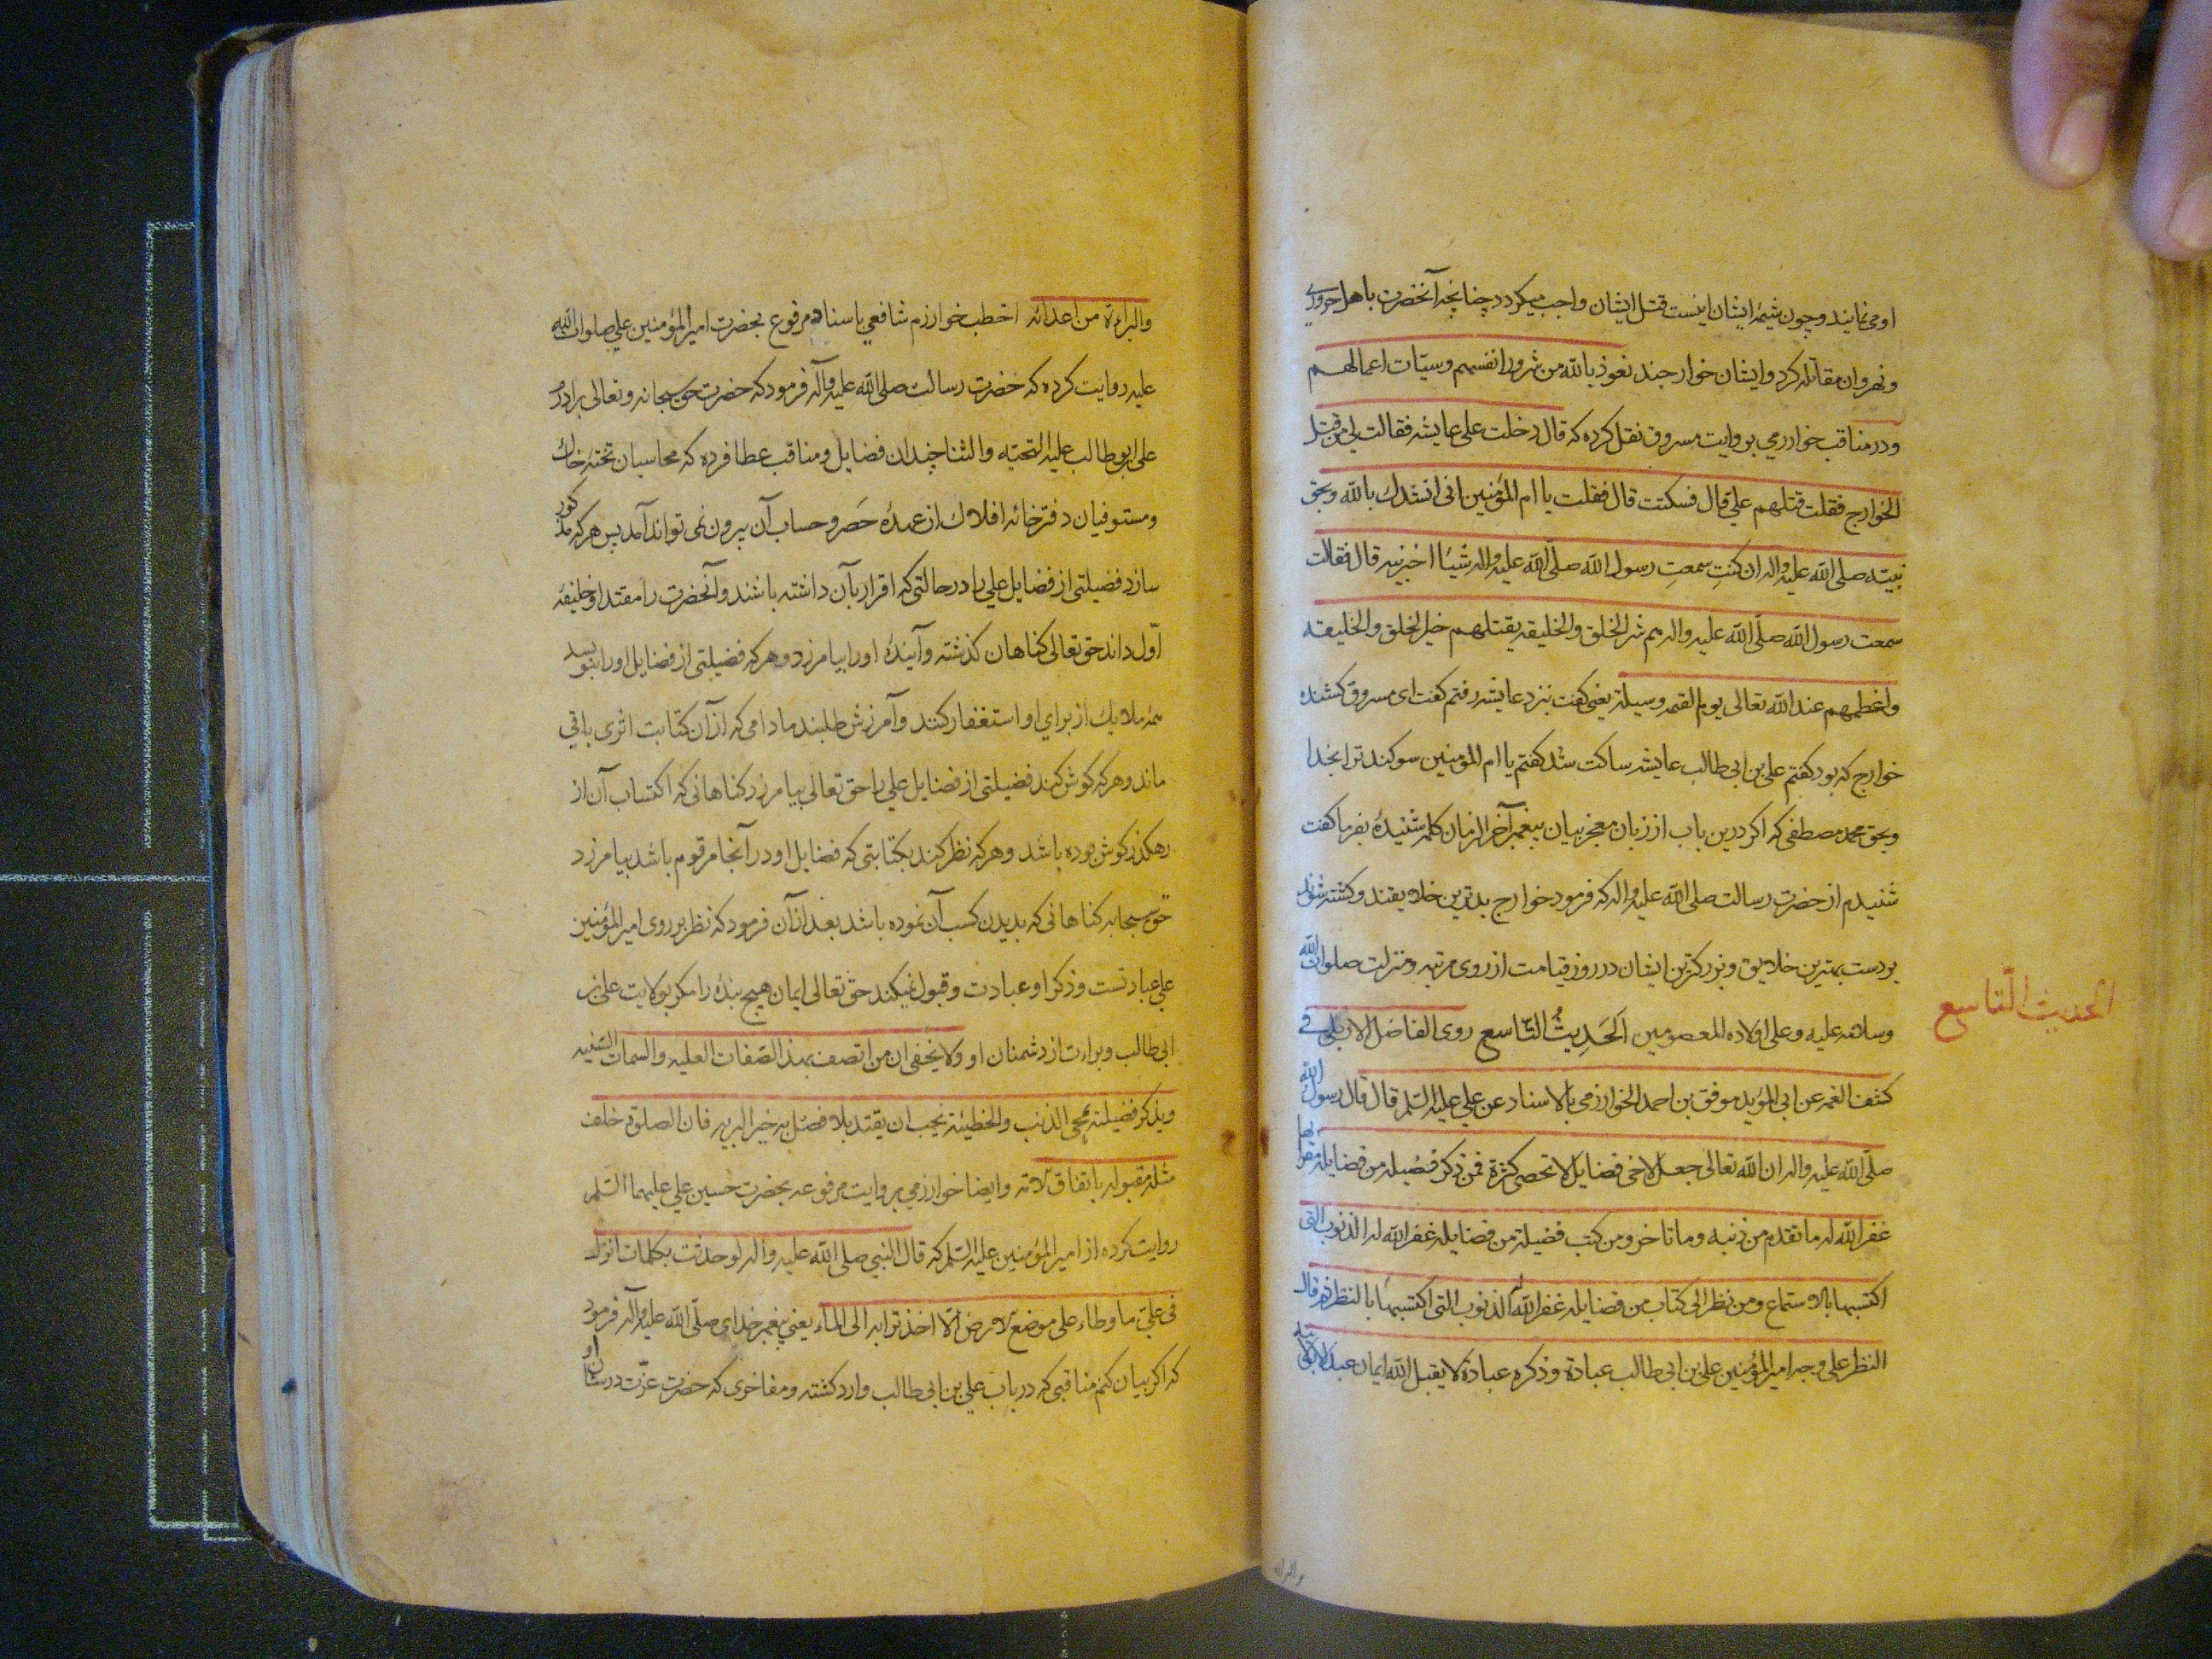 او می نمایند و چون شیمهٔ ایشان اینست قتل ایشان واجب میکردد چنانچه آنحضرت با اهل حروری
و نهروان مقاتله کرد و ایشان خوارجند نعوذ بالله من شرور انفسهم و سیئات اعمالهم
و در مناقب خوارزمی بروایت مسروق نقل کرده که قال دخلت علی عایشه فقالت لی من قتل
الخوارج فقلت قتلهم علیّ قال فسکتت قال فقلت یا ام المؤمنین انی انشدك بالله و بحق
نبیّه صلی الله علیه واله ان کنتِ سمعتِ رسول الله صلّی الله علیه واله شیئا اخبرنیه قال فقالت
سمعت رسول الله صلّی الله علیه واله هم شر الخلق والخلیقه یقتلهم خیر الخلق والخلیقه
واعظمهم عند الله تعالی یوم القیمه وسیلة یعنی کفت بنزد عایشه رفتم کفت ای مسروق کشنده
خوارج که بود کفتم علی بن ابی طالب عایشه ساکت شد کفتم یا ام المؤمنین سوکند ترا بخدا
و بحق محمد مصطفی که اکر درین باب از زبان معجز بیان پیغمبر آخر الزمان کلمه شنیدهٔ بفرما کفت
شنیدم از حضرت رسالت صلی الله علیه واله که فرمود خوارج بدترین خلایقند و کشته شوند
بر دست بهترین خلایق و بزرکترین ایشان در روز قیامت از روی مرتبه و منزلت صلوات الله
وسلامه علیه وعلی اولاده المعصومین اَلحَدِیثُ التّاسع روی الفاضل الاربلی فی
الحدیث التّاسع
کشف الغمه عن ابی المؤید موفق بن احمد الخوارزمی بالاسناد عن علی علیه السّلم قال قال رسول الله
صلّی الله علیه واله ان الله تعالی جعل لاخی فضایل لا تحصی کثرة فمن ذکر فضیله من فضایله مقرا بها
غفر الله له ما تقدم من ذنبه وما تاخر ومن کتب فضیلة من فضایله غفر الله له الذنوب التی
اکتسبها بالاستماع ومن نظر الی کتاب من فضایله غفر الله له الذنوب التی اکتسبها بالنظر ثم قال
النظر علی وجه امیر المؤمنین علی بن ابی طالب عبادة و ذکره عبادة لا یقبل الله ایمان عبد الا بولایته
والبراة
والبراءة من اعدائه اخطب خوارزم شافعی باسناد مرفوع بحضرت امیر المؤمنین علی صلوات الله
علیه روایت کرده که حضرت رسالت صلی الله علیه وآله فرمود که حضرت حق سبحانه وتعالی برادرم
علی ابو طالب علیه التحیّه والثنا چندان فضایل و مناقب عطا فرده که محاسبان تختهٔ خاك
ومستوفیان دفترخانهٔ افلاك از عهدهٔ حَصر و حساب آن بیرون نمی تواند آمد پس هر که مذکور
سازد فضیلتی از فضایل علی را در حالتی که اقرار بآن داشته باشند وآنحضرت را مقتدا و خلیفهٔ
اوّل داند حق تعالی کناهان کذشته وآیندهٔ او را بیامرزد و هر که فضیلتی از فضایل او را بنویسد
همه ملایك از برای او استغفار کنند وآمرزش طلبند مادامی که از آن کتابت اثری باقی
ماند و هر که کوش کند فضیلتی از فضایل علی را حق تعالی بیامرزد کناهانی که اکتساب آن از
رهکذر کوش بوده باشد و هر که نظر کند بکتابتی که فضایل او در آنجا مرقوم باشد بیامرزد
حق سبحانه کناهانی که بدیدن کسب آن نموده باشد بعد از آن فرمود که نظر بر روی امیر المؤمنین
علی عبادتست و ذکر او عبادت و قبول نمیکند حق تعالی ایمان هیچ بنده را مکر بولایت علی بن
ابی طالب و براءت از دشمنان او ولا یخفی ان من اتصف بهذه الصّفات العلیه والسمات السّنیه
وبذکر فضیلته یمحی الذنب والخطیئة یجب ان یقتدی بلا فصل به خیر البریه فان الصلوة خلف
مثله مقبوله باتفاق الامّه وایضا خوارزمی بروایت مرفوعه بحضرت حسین علی علیهما السّلم
روایت کرده از امیر المؤمنین علیه السّلم که قال النبی صلی الله علیه واله لو حدثت بکلمات انزل
فی علیّ ما وطاء علی موضع الارض الّا اخذ ترابه الی الماء یعنی پیغمبر خدای صلّی الله علیه وآله فرمود
که اکر بیان کنم مناقبی که در باب علی بن ابی طالب وارد کشته و مفاخری که حضرت عزّت در شان او